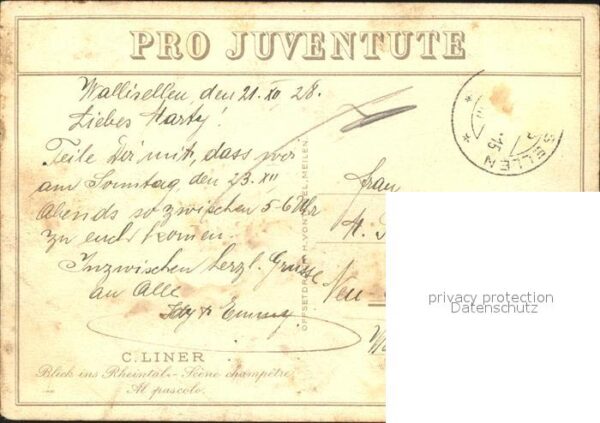 PRO JUVENTUTE
Wallisellen, den 21. XII. 28.
Liebes Marty!
Teile Dir mit, dass wir
am Sonntag, den 23. XII
Abends so zwischen 5-6 Uhr
zu euch komen.
Inzwischen herzl. Grüsse
an Alle
Emmy
C. LINER
Blick ins Rheintal - Scène champêtre
Al pascolo.
OFFSETDRUCK H. VONTOBEL, MEILEN
SELLEN
15
Frau
privacy protection
Datenschutz